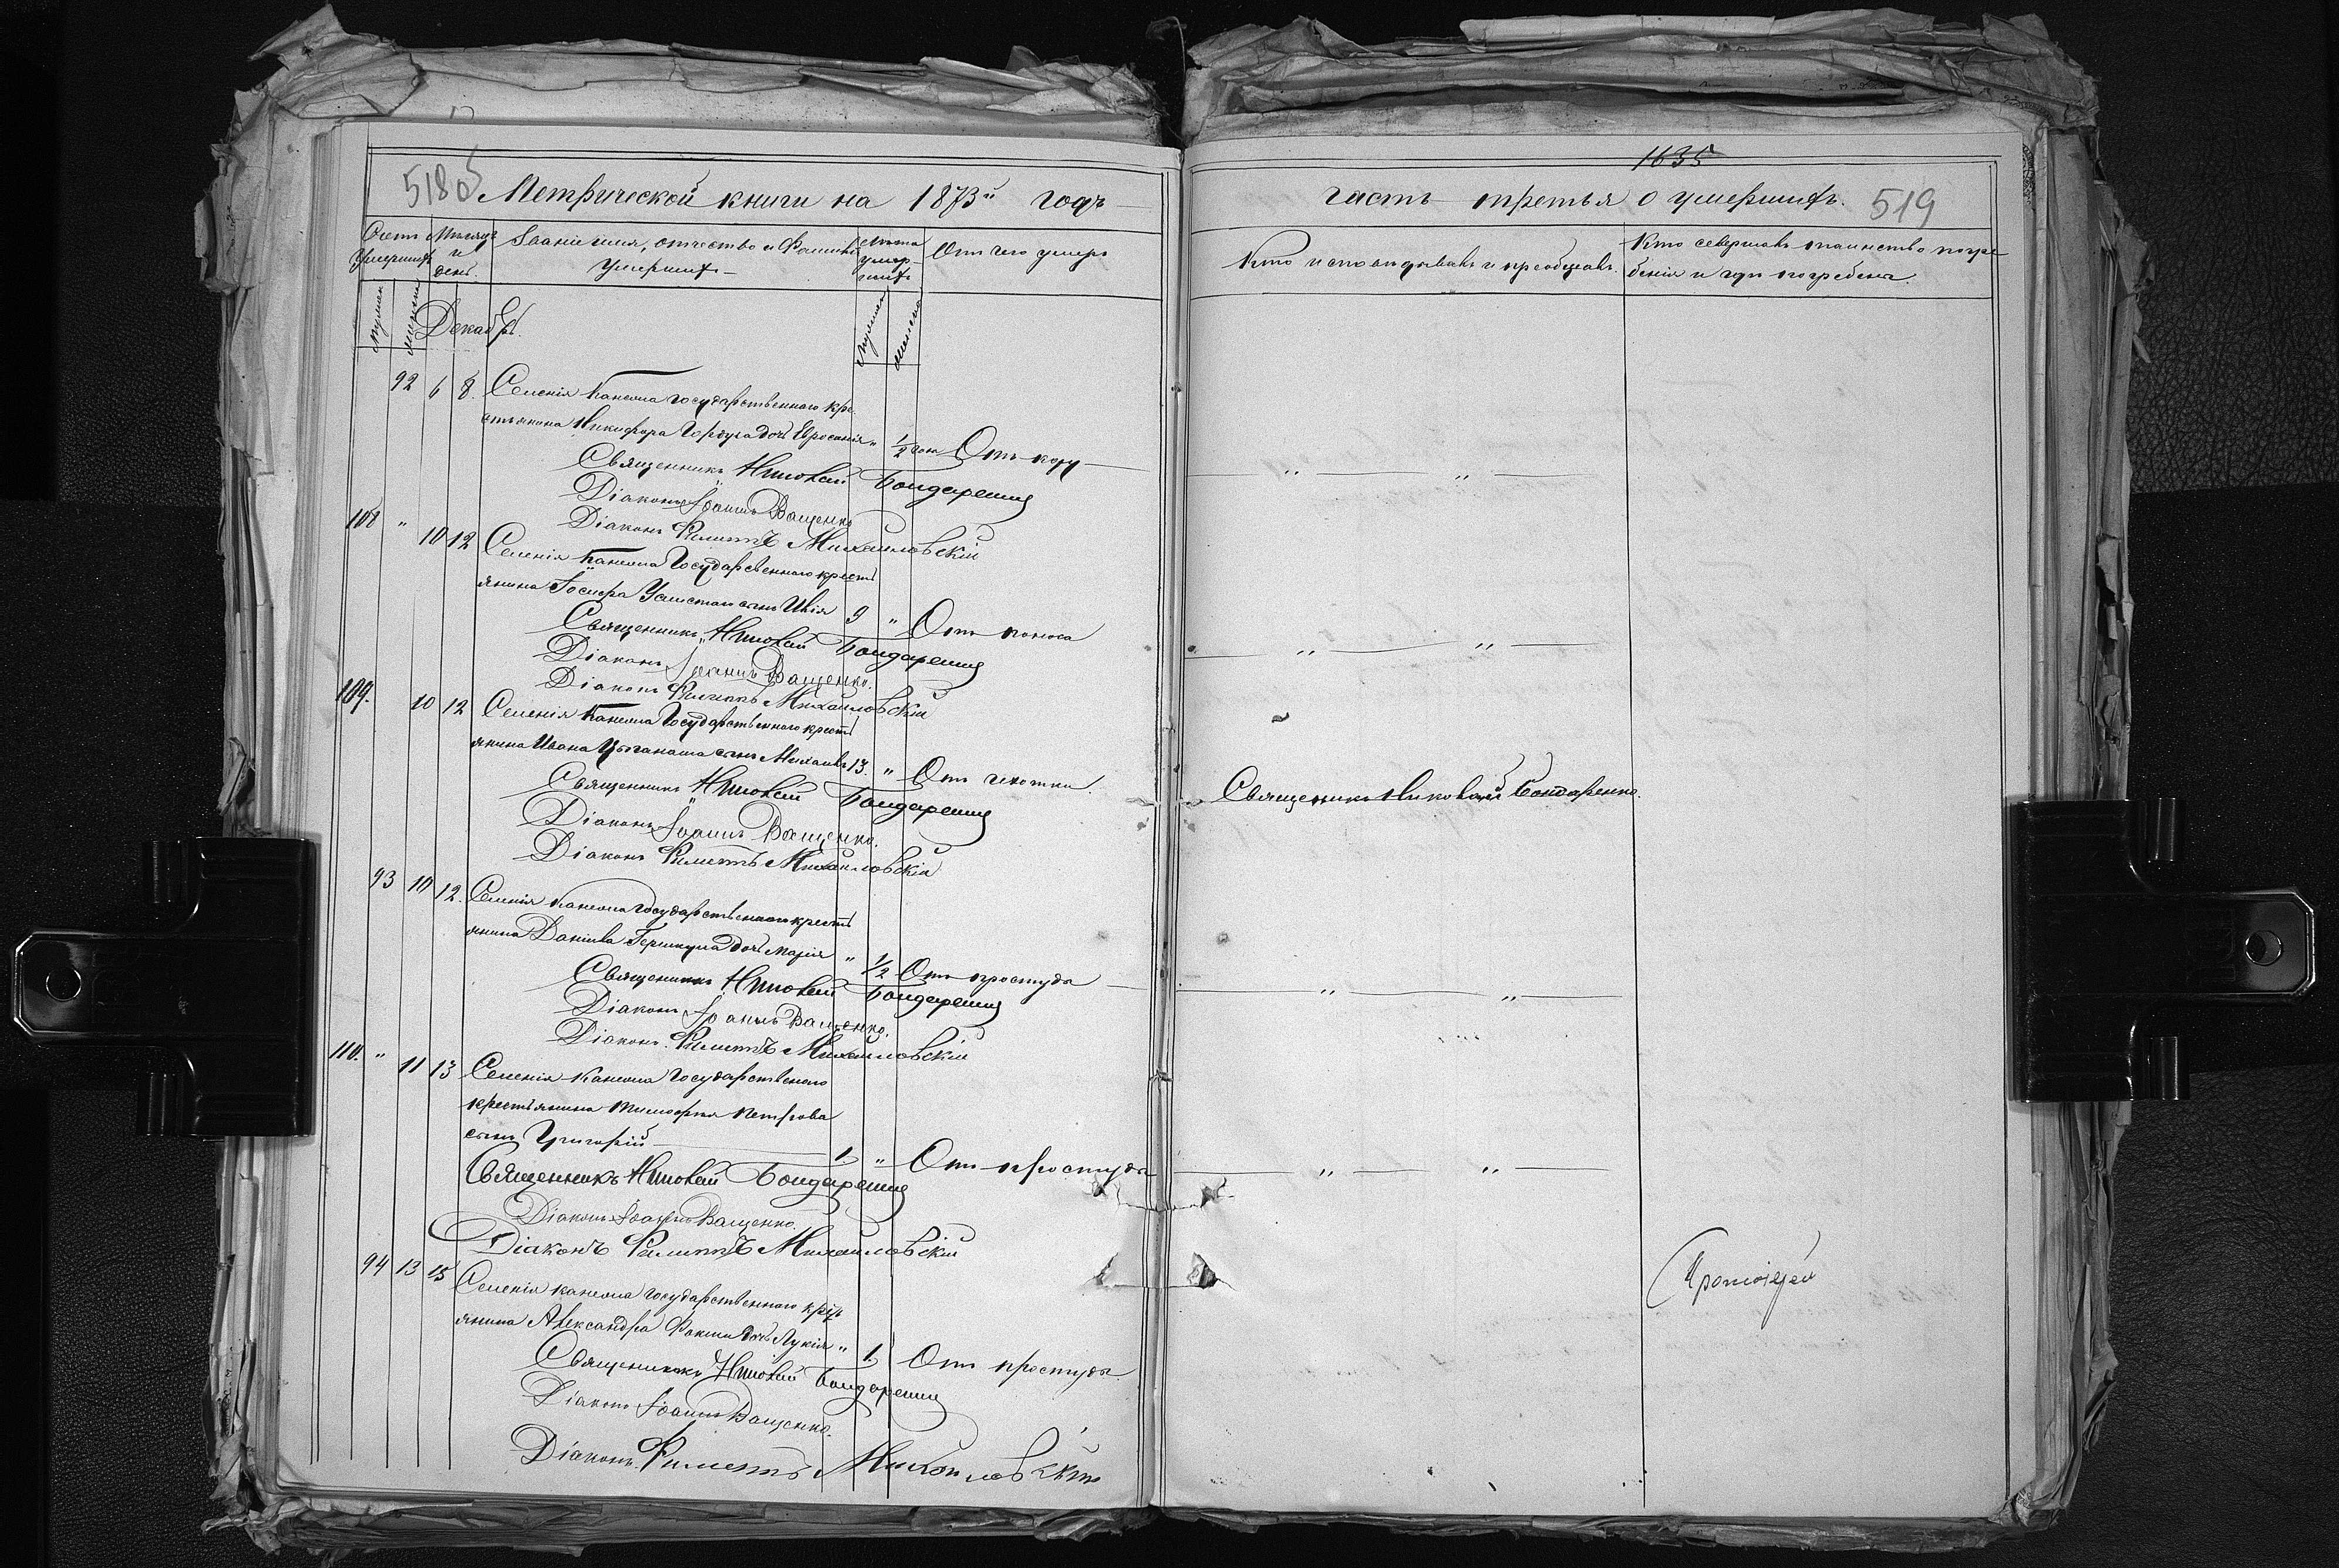 518 об
Метрической книги на 1873й годъ
Счетъ умершихъ
Мѣсяцъ и день.
Званіе имя, отчество и Фамилія умершихъ
Лѣта умершихъ
Отъ чего умеръ
мужеск женски
Декабрь.
мужеск женска
92 6 8. Селенія Кантема государственного кре-
стьянина Никифора дочь Евросинія „ 1/2 года Отъ кору
Священникъ Николай Бондаренко
Діаконъ Іоаннъ Ващенко
Діаконъ Филиппъ Михайловскій
108 „ 10 12 Селенія Кантема Государственного кресть
янина Іосифа сынъ 9 „ Отъ поноса
Священникъ Николай Бондаренко
Діаконъ Іоаннъ Ващенко.
Діаконъ Филиппъ Михайловскій
109. 10 12 Селенія Кантема Государственного кресть
янина Ивана Цыганаша сынъ Михаилъ 13. „ Отъ чехотки.
Священникъ Николай Бондаренко
Діаконъ Іоаннъ Ващенко.
Діаконъ Филиппъ Михайловскій
93 10 12. Селенія Кантема Государственного кресть
янина Даніила дочь Марія „ 1/2 Отъ простуда
Священникъ Николай Бондаренко
Діаконъ Іоаннъ Ващенко.
Діаконъ Филиппъ Михайловскій
110. „ 11 13 Селенія Кантема Государственого
крестьянина Тимофея Петрова
сынъ Григорій 1 „ Отъ простуда
Священникъ Николай Бондаренко
Діаконъ Іоаннъ Ващенко.
Діаконъ Филиппъ Михайловскій
94 13 15 Селенія Кантема государственного
янина Александра дочь Лукія „ 1 Отъ простуда
Священникъ Николай Бондаренко
Діаконъ Іоаннъ Ващенко.
Діаконъ Филиппъ Михайловскій
1635
часть третья о умершихъ. 519
Кто исповѣдывалъ и пріобщалъ.
Кто совершалъ таинство погре
бенія и гдѣ погребенъ.
„ „
„ „
Священникъ Николай Бондаренко.
„ „
„ „
Протоіерей